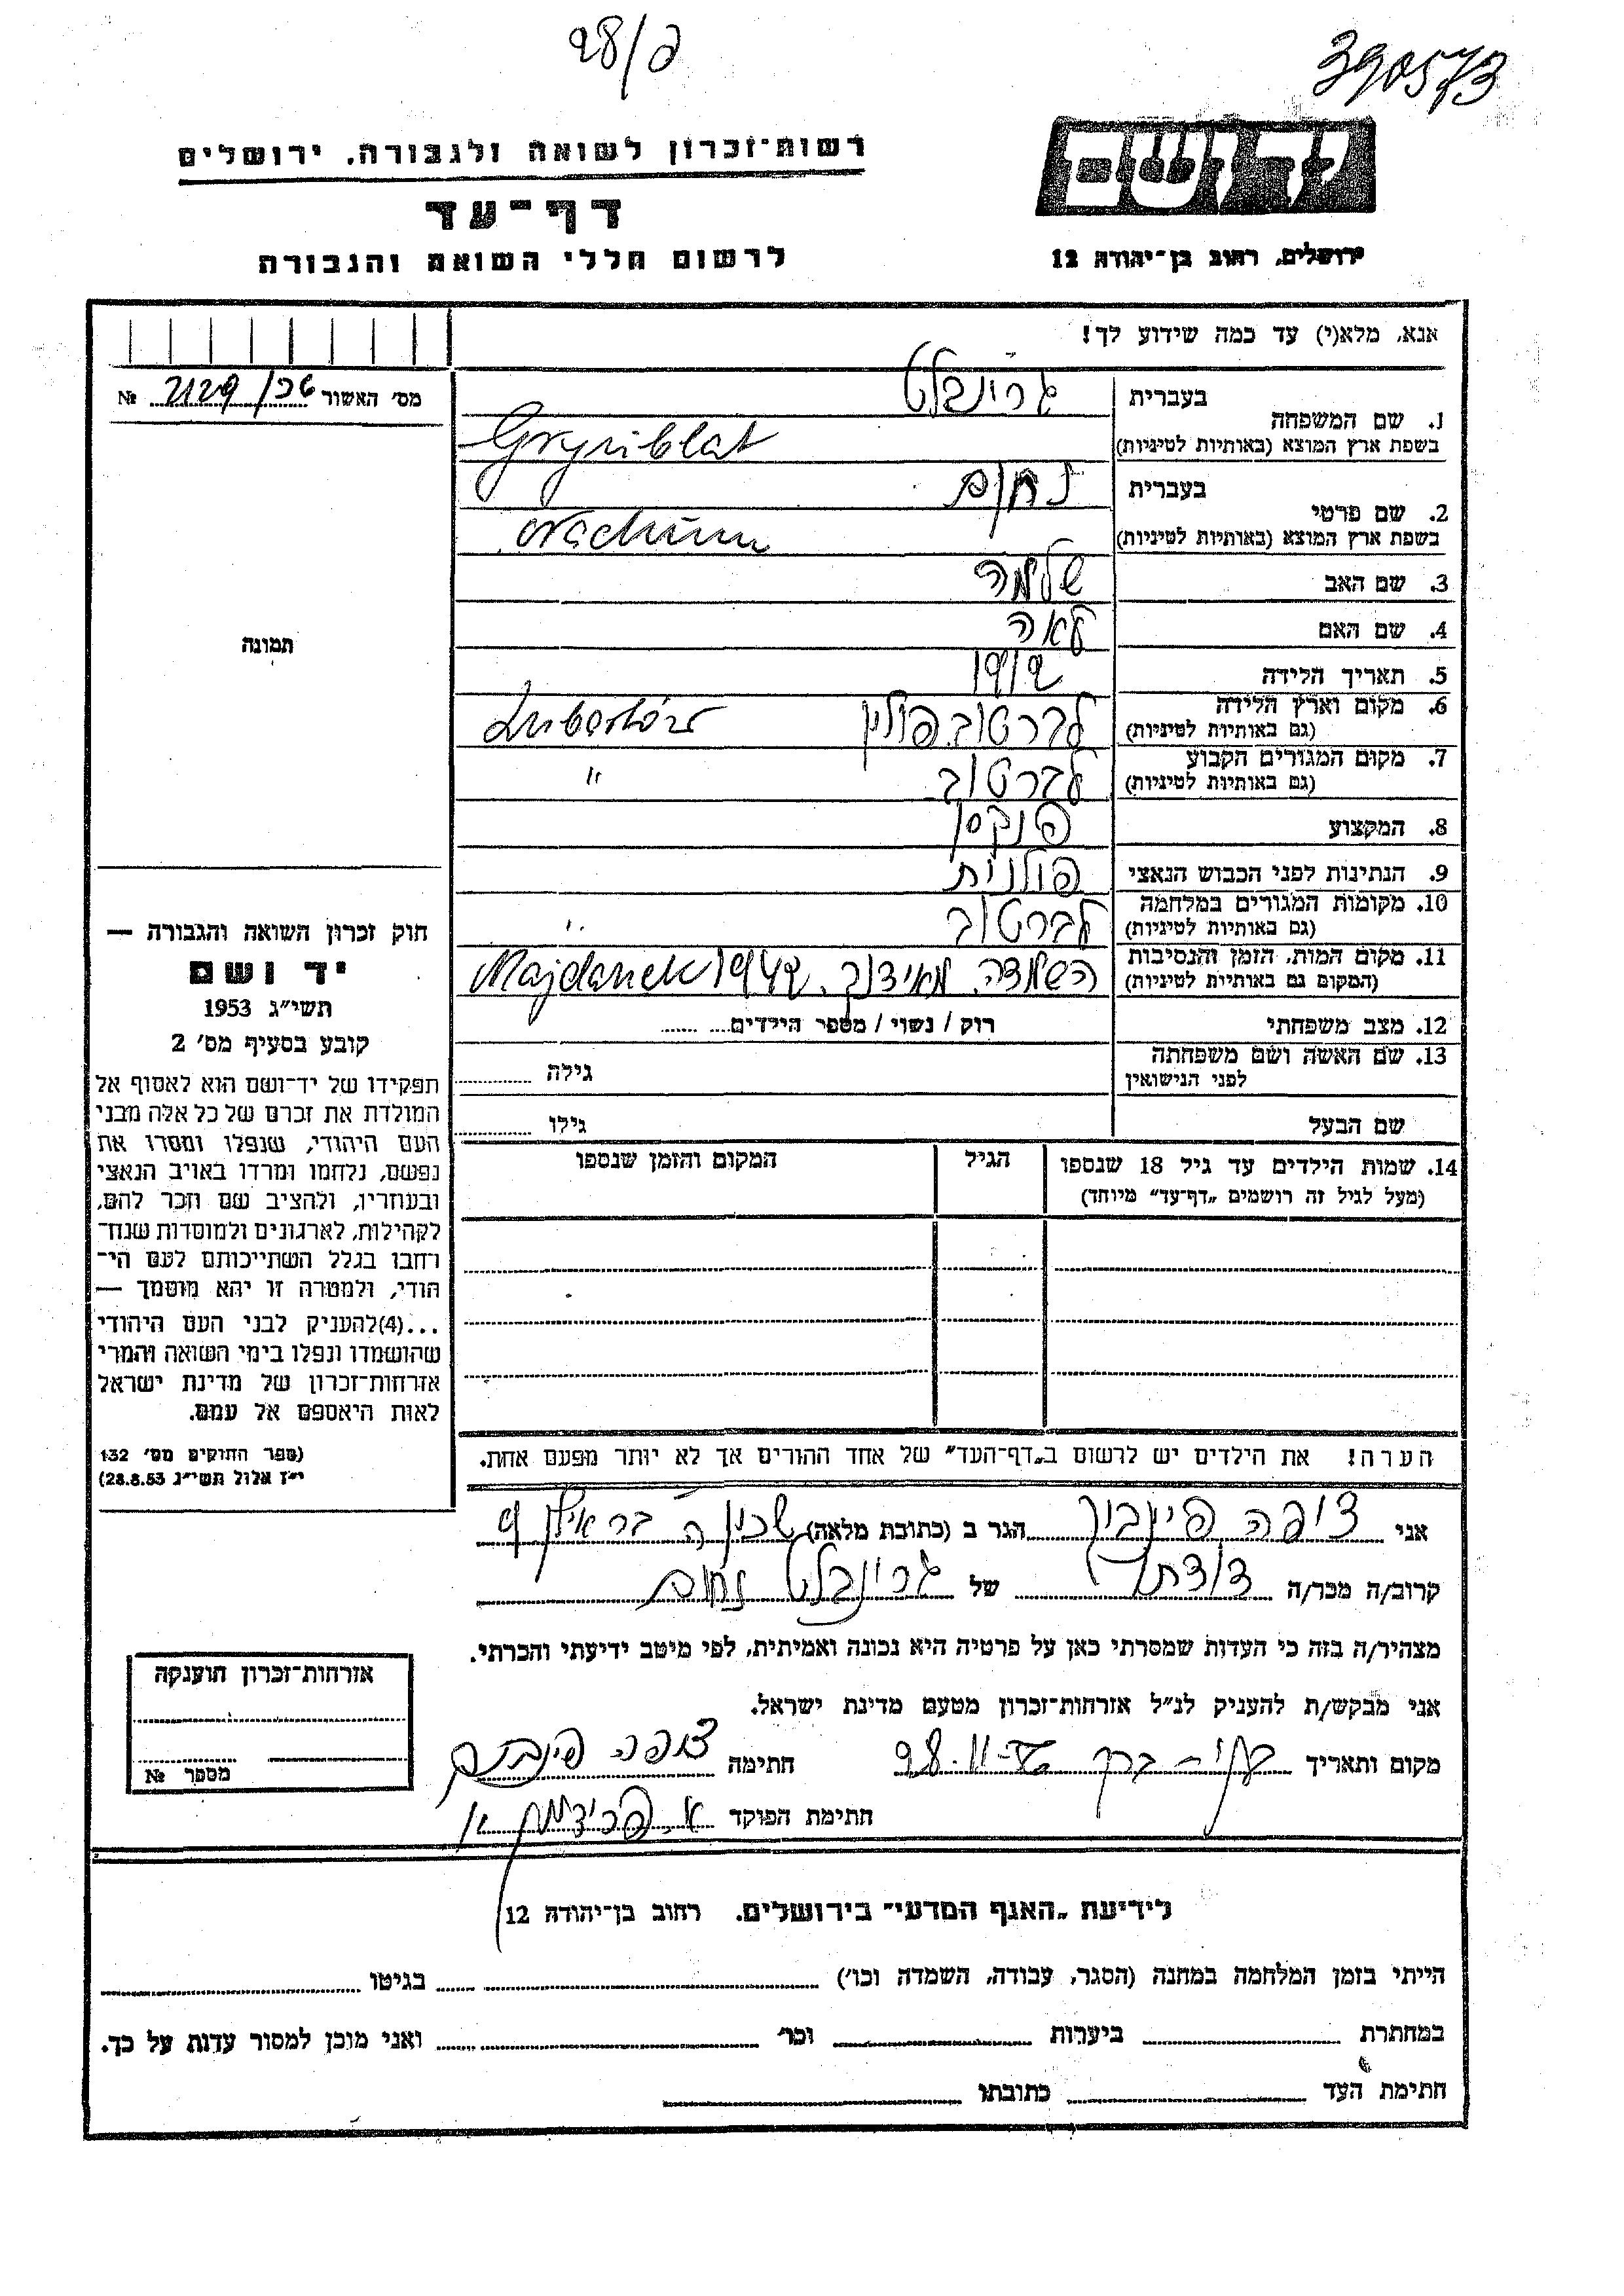 28/פ
390573
רשות־זכרון לשואה ולגבורה, ירושלים
דף־עד
לרשום חללי השואה והגבורה
יד ושם
ירושלים, רחוב בן־יהודה 12
אנא, מלא(י) עד כמה שידוע לך!
מס׳ האשור №
1. שם המשפחה
בעברית גרינבלט
בשפת ארץ המוצא (באותיות לטיניות) Grynblat
2. שם פרטי
בעברית נחום
בשפת ארץ המוצא (באותיות לטיניות) Nachum
3. שם האב שלמה
4. שם האם לאה
5. תאריך הלידה 1912
6. מקום וארץ הלידה לברטוב פולין
(גם באותיות לטיניות) Lubartów
7. מקום המגורים הקבוע לברטוב "
(גם באותיות לטיניות)
8. המקצוע פנקסן
9. הנתינות לפני הכבוש הנאצי פולנית
10. מקומות המגורים במלחמה לברטוב "
(גם באותיות לטיניות)
11. מקום המות, הזמן והנסיבות השמדה מאידנק. 1942 Majdanek
(המקום גם באותיות לטיניות)
12. מצב משפחתי רוק / נשוי / מספר הילדים
13. שם האשה ושם משפחתה גילה
לפני הנישואין
שם הבעל גילו
14. שמות הילדים עד גיל 18 שנספו הגיל המקום והזמן שנספו
(מעל לגיל זה רושמים „דף־עד״ מיוחד)
הערה! את הילדים יש לרשום ב„דף־העד״ של אחד ההורים אך לא יותר מפעם אחת.
תמונה
חוק זכרון השואה והגבורה —
יד ושם
תשי״ג 1953
קובע בסעיף מס׳ 2
תפקידו של יד־ושם הוא לאסוף אל
המולדת את זכרם של כל אלה מבני
העם היהודי, שנפלו ומסרו את
נפשם, נלחמו ומרדו באויב הנאצי
ובעוזריו, ולהציב שם וזכר להם,
לקהילות, לארגונים ולמוסדות שנח־
רחבו בגלל השתייכותם לעם הי־
הודי, ולמטרה זו יהא מוסמך —
...(4)להעניק לבני העם היהודי
שהושמדו ונפלו בימי השואה והמרי
אזרחות־זכרון של מדינת ישראל
לאות היאספם אל עמם.
(ספר החוקים מס׳ 132
י״ז אלול תשי״ג 28.8.53)
אני צופה הגר ב (כתובת מלאה) שכון ה בר אילן 9
קרוב/ה מכר/ה של גרינבלט נחום
מצהיר/ה בזה כי העדות שמסרתי כאן על פרטיה היא נכונה ואמיתית, לפי מיטב ידיעתי והכרתי.
אני מבקש/ת להעניק לנ״ל אזרחות־זכרון מטעם מדינת ישראל.
מקום ותאריך בני־ברק 28.11 חתימה צופה
חתימת הפוקד
אזרחות־זכרון הוענקה
מספר №
לידיעת „האגף המדעי״ בירושלים. רחוב בן־יהודה 12
הייתי בזמן המלחמה במחנה (הסגר, עבודה, השמדה וכו׳) בגיטו
במחתרת ביערות וכו׳ ואני מוכן למסור עדות על כך.
חתימת העד כתובתו